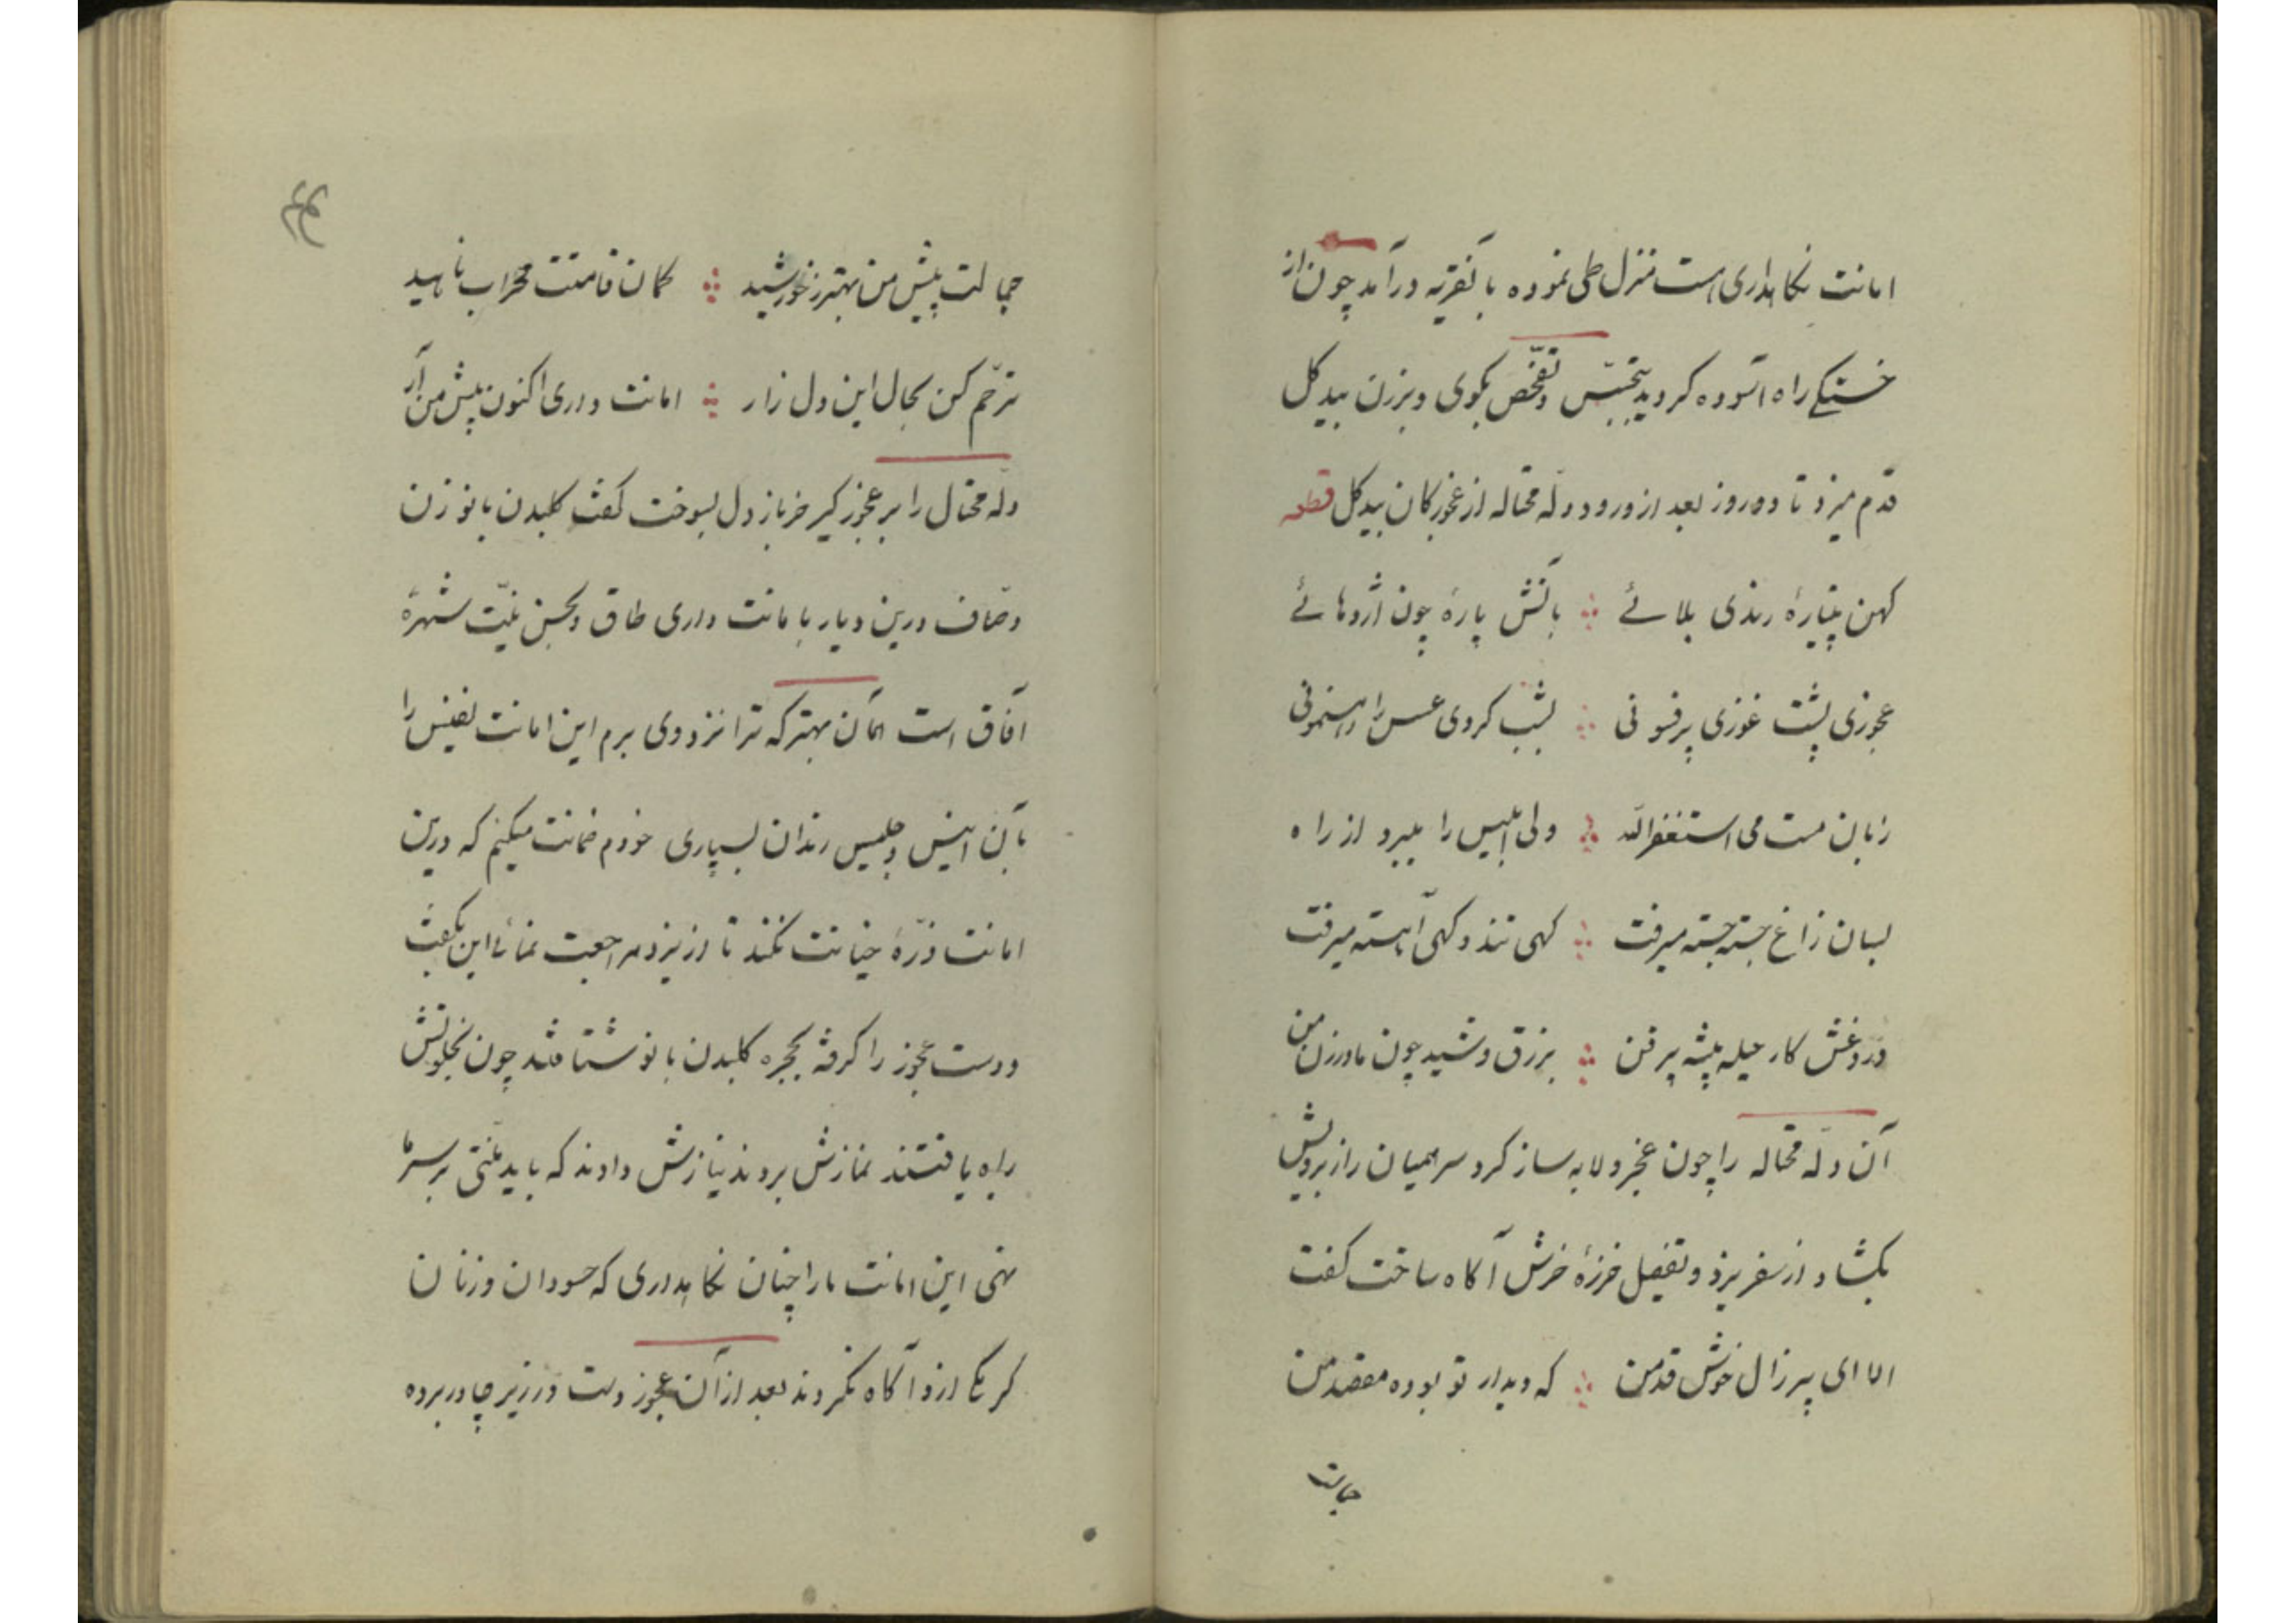 امانت نگاهداری است منزل طی نموده بآنقریه درآمد چون از
خستگی راه آسوده گردید بتجسّس و تفحّص بکوی و برزن بیدگل
قدم میزد تا دو روز بعد از ورود دلّه محتاله از عجوزکان بیدگل قطعه
کهن پتیارهٔ رندی بلائے ؞ بآتش پارهٔ چون اژدهائے
عجوزی پشت غوزی پرفسونی ؞ بشب کردی عسس را رهنمونی
زبان مست می استغفرالله ؞ ولی ابلیس را میبرد از راه
بسان زاغ جسته جسته میرفت ؞ گهی تند و گهی آهسته میرفت
دروغش کار حیله پیشه پرفن ؞ بزرق و شید چون مادرزن من
آن دلّه محتاله را چون عجز و لابه ساز کرد سر همیان راز برویش
بگشاد از سفر یزد و تفصیل خرزهٔ خرش آگاه ساخت گفت
الا ای پیرزال خوش قدمن ؞ که دیدار تو بوده مقصد من
جمالت
جمالت پیش من بهتر ز خورشید ؞ کمان قامتت محراب ناهید
ترحّم کن بحال این دل زار ؞ امانت داری اکنون پیش من آر
دلّه محتال را بر عجوز کیر خر باز دل بسوخت گفت گلبدن بانو زن
وصّاف درین دیار بامانت داری طاق و بحسن نیّت شهرهٔ
آفاق است همان بهتر که ترا نزد وی برم این امانت نفیس را
بآن انیس و جلیس رندان بسپاری خودم ضمانت میکنم که درین
امانت ذرّهٔ خیانت نکند تا از یزد مراجعت نمائے این بگفت
و دست عجوز را گرفته بحجره گلبدن بانو شتافتند چون بخلوتش
راه یافتند نمازش بردند نیازش دادند که باید منّتی بر سر ما
نهی این امانت ما را چنان نگاهداری که حسودان و زنان
کر بکا ازو آگاه نگردند بعد از آن عجوز دست در زیر چادر برده